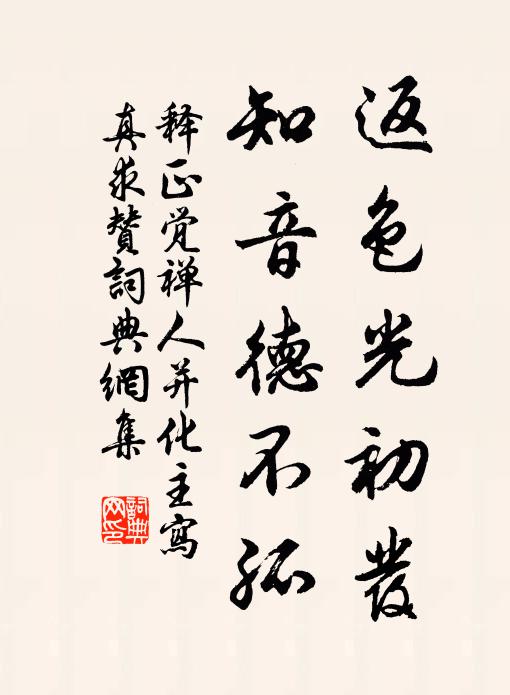 返色光初发
知音德不孤
释正觉禅人并化主寫
真求赞詞典網集
詞典网印